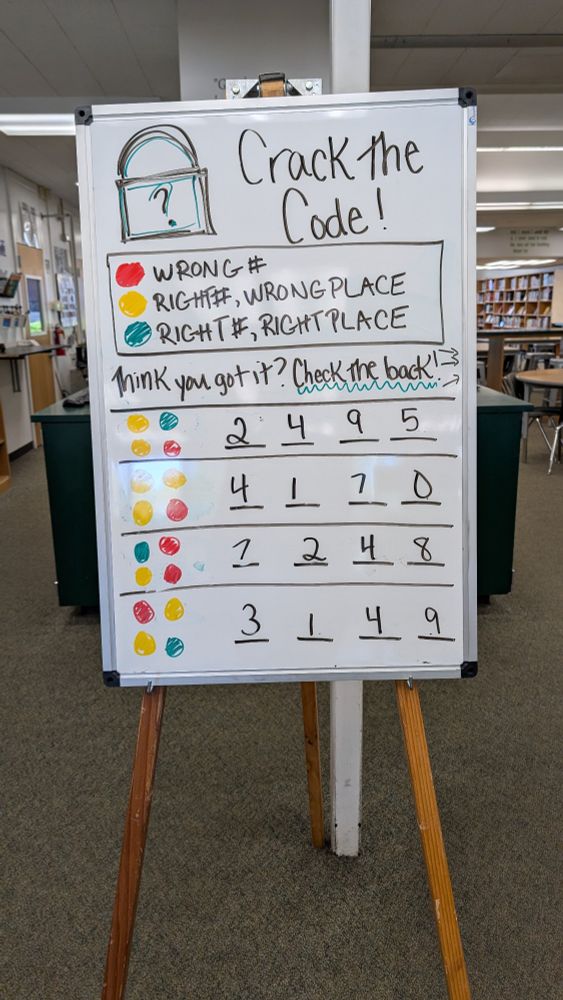 Crack the
Code!
?
WRONG #
RIGHT#, WRONG PLACE
RIGHT #, RIGHT PLACE
Think you got it? Check the back!
2 4 9 5
4 1 7 0
7 2 4 8
3 1 4 9